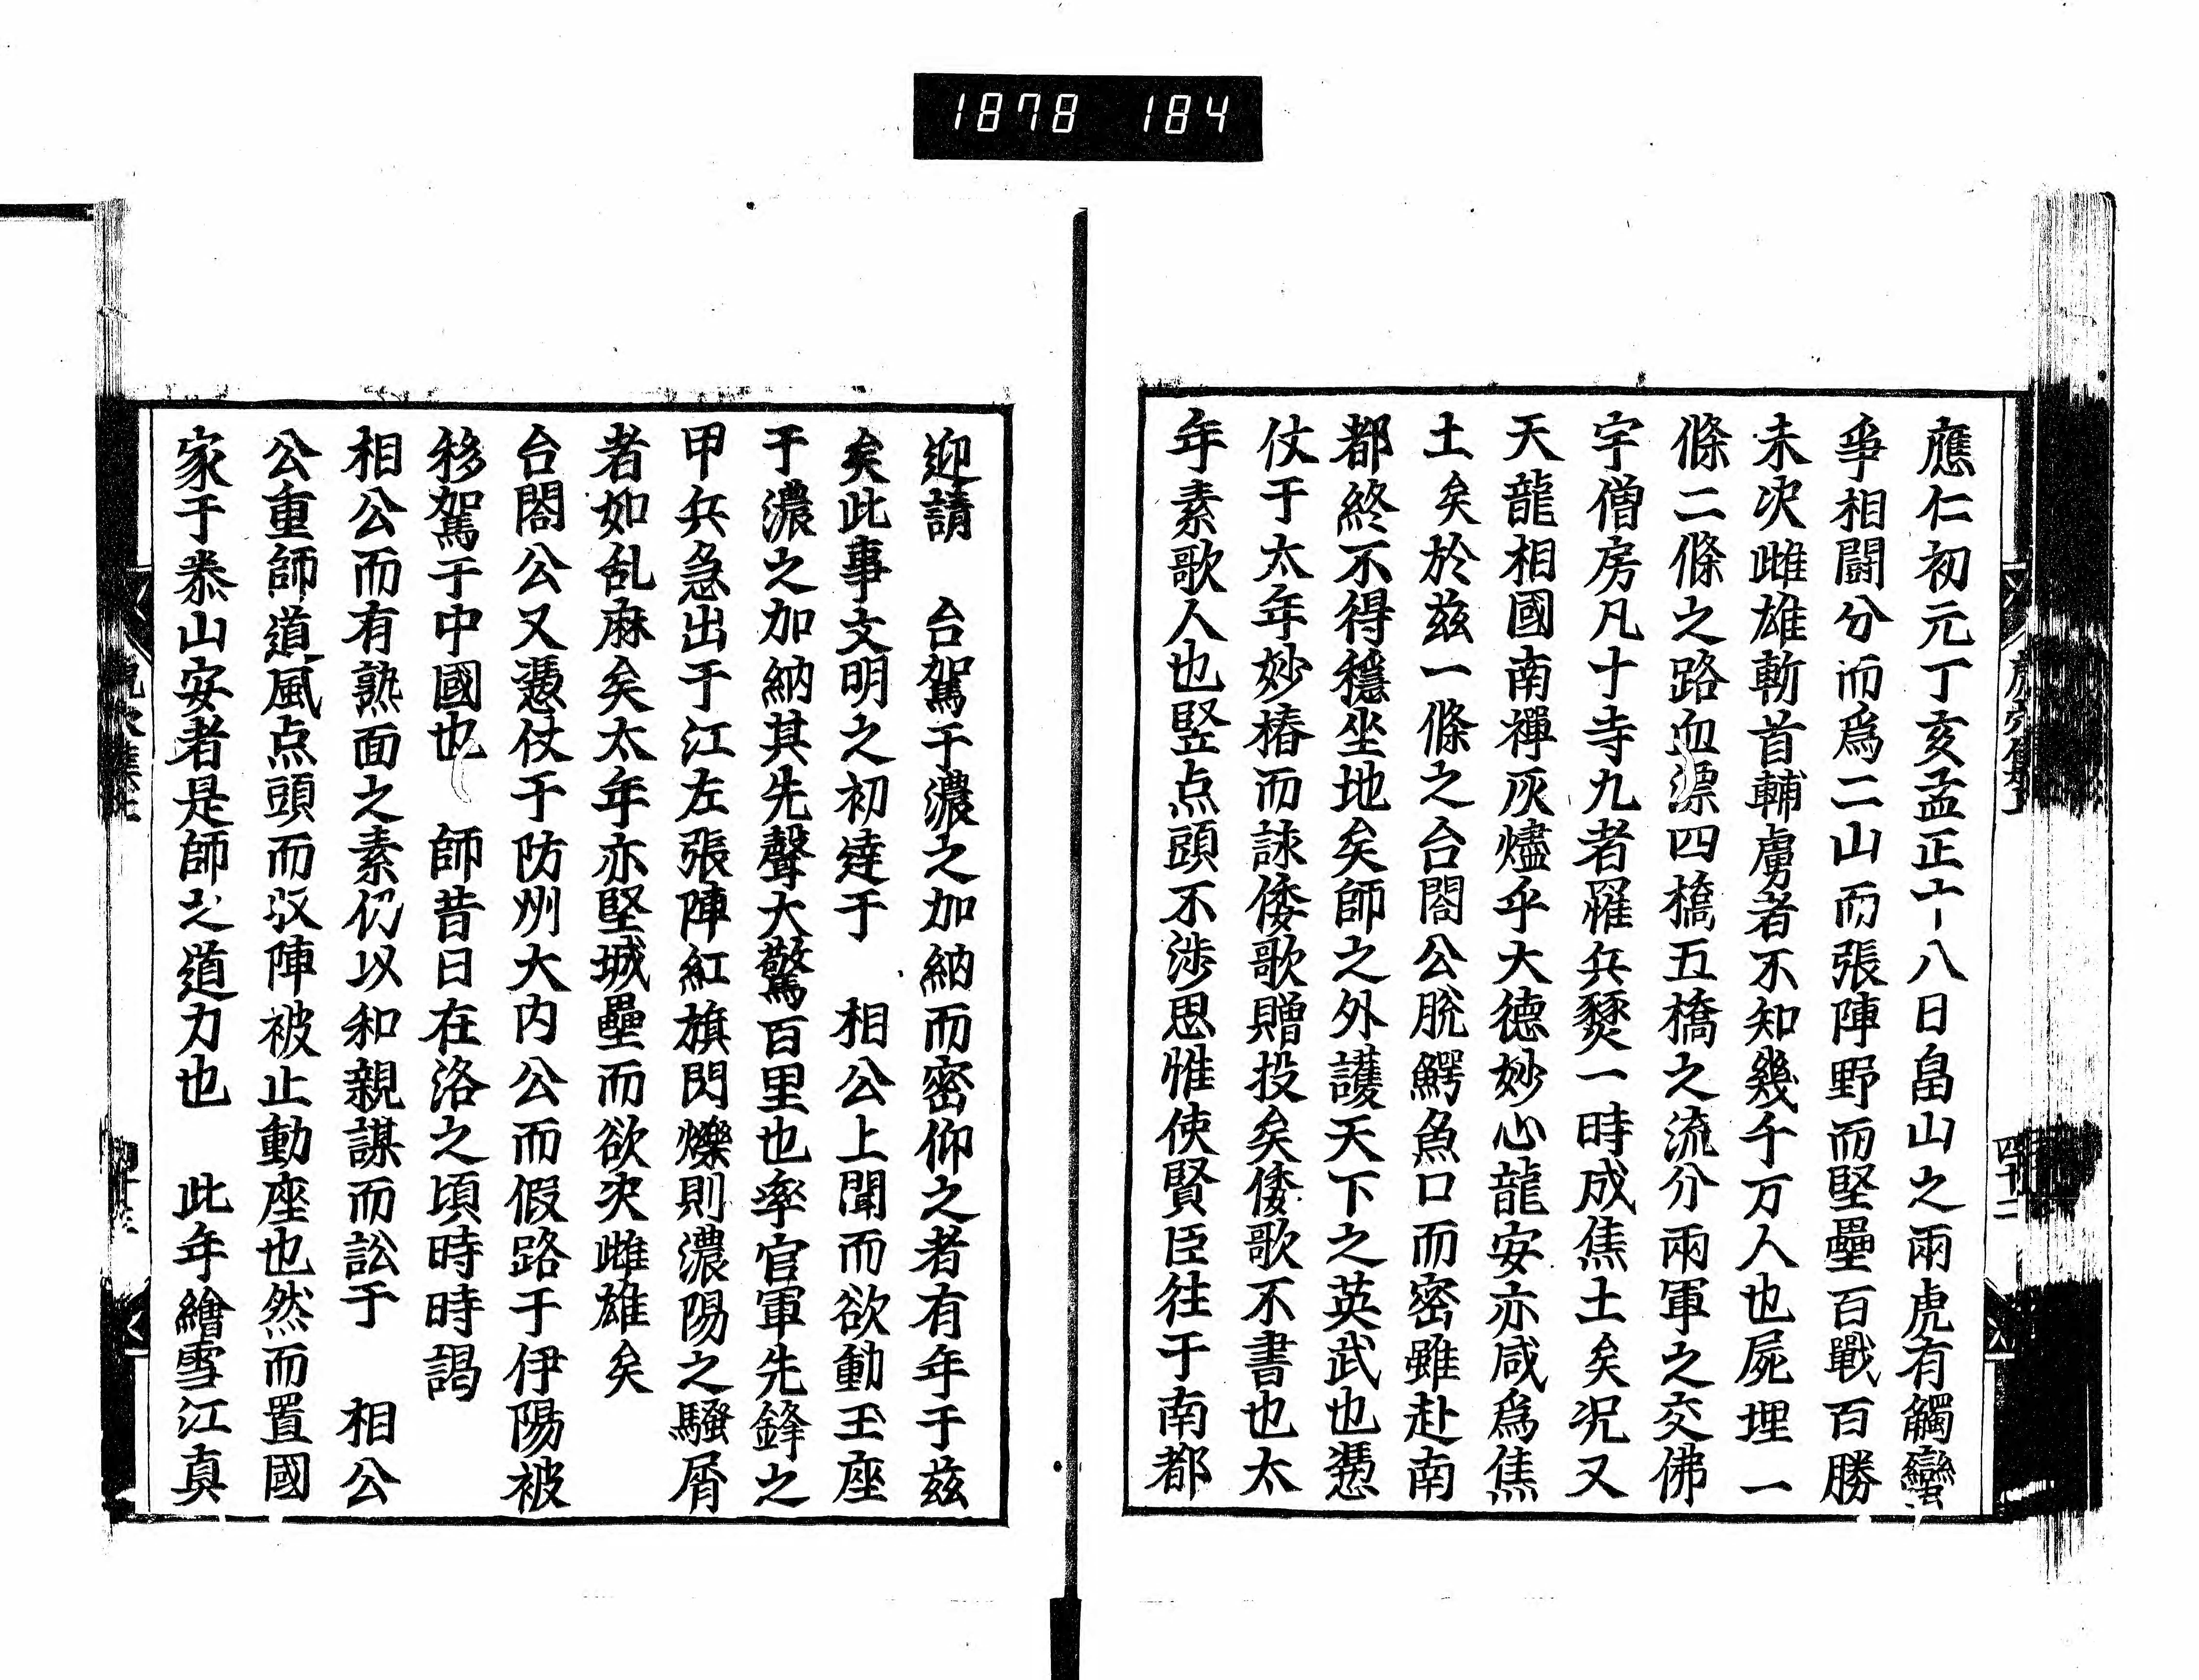 1878 184
應仁初元丁亥孟正十八日畠山之兩虎有觸蠻
爭相鬪分而爲二山而張陣野而堅壘百戰百勝
未決雌雄斬首輔虜者不知幾千万人也屍埋一
條二條之路血漂四橋五橋之流分兩軍之交佛
宇僧房凡十寺九者罹兵燹一時成焦土矣况又
天龍相國南禪灰燼乎大德妙心龍安亦咸爲焦
土矣於茲一條之台閤公脫鰐魚口而密雖赴南
都終不得穩坐地矣師之外護天下之英武也憑
仗于太年妙椿而詠倭歌贈投矣倭歌不書也太
年素歌人也竪点頭不涉思惟使賢臣往于南都
四十二
迎請 台駕于濃之加納而密仰之者有年于茲
矣此事文明之初達于 相公上聞而欲動玉座
于濃之加納其先聲大驚百里也率官軍先鋒之
甲兵急出于江左張陣紅旗閃爍則濃陽之騷屑
者如乱麻矣太年亦堅城壘而欲决雌雄矣
台閤公又憑仗于防州大内公而假路于伊陽被
移駕于中國也 師昔日在洛之頃時時謁
相公而有熟面之素仍以和親謀而訟于 相公
公重師道風点頭而収陣被止動座也然而置國
家于泰山安者是師之道力也 此年繪雪江真